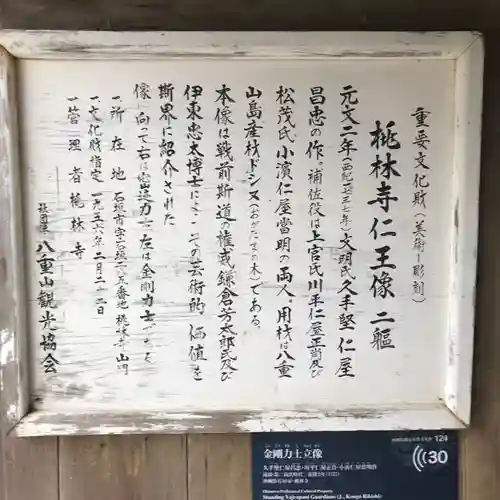 重要文化財（美術ー彫刻）
桃林寺仁王像 二軀
元文二年（西紀一七三七年）大明氏久手堅仁屋
昌忠の作。補佐役は上官氏川平仁屋正當及び
松茂氏小濱仁屋當明の両人。用材は八重
山島産材ドシヌ（おがたまの木）である。
本像は戦前斯道の権威鎌倉芳太郎氏及び
伊東忠太博士によってその芸術的価値を
斯界に紹介された
像に向って右は密迹力士左は金剛力士である
一所在地 石垣市字石垣 桃林寺山門
一文化財指定 一九五六年二月二二日
一管理者 桃林寺
社団法人 八重山観光協会
124
金剛力士立像
30